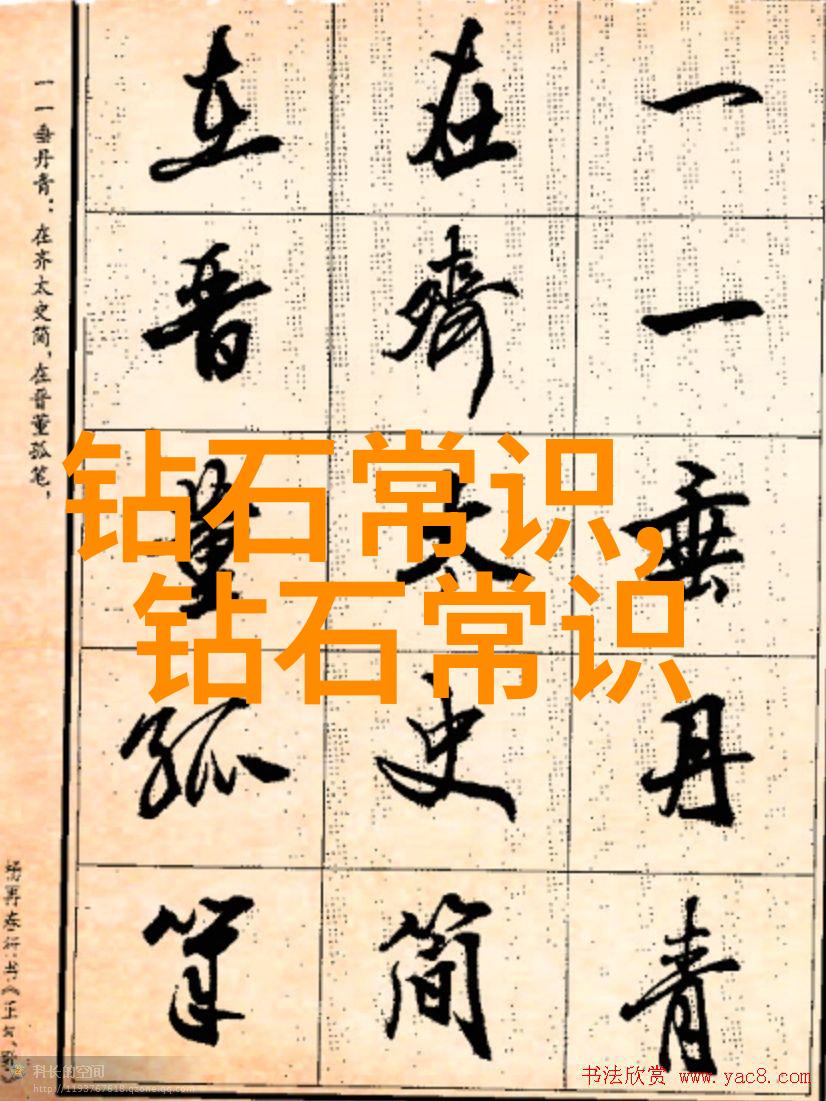 一一垂丹青
在齊太史简
在晋董狐笔
一一垂丹青：在齐太史简，在晋董狐笔，
钻石常识，
钻石常识
科长的空间
http://1193767618.qzone.qq.com
书法欣赏 www.yac8.com